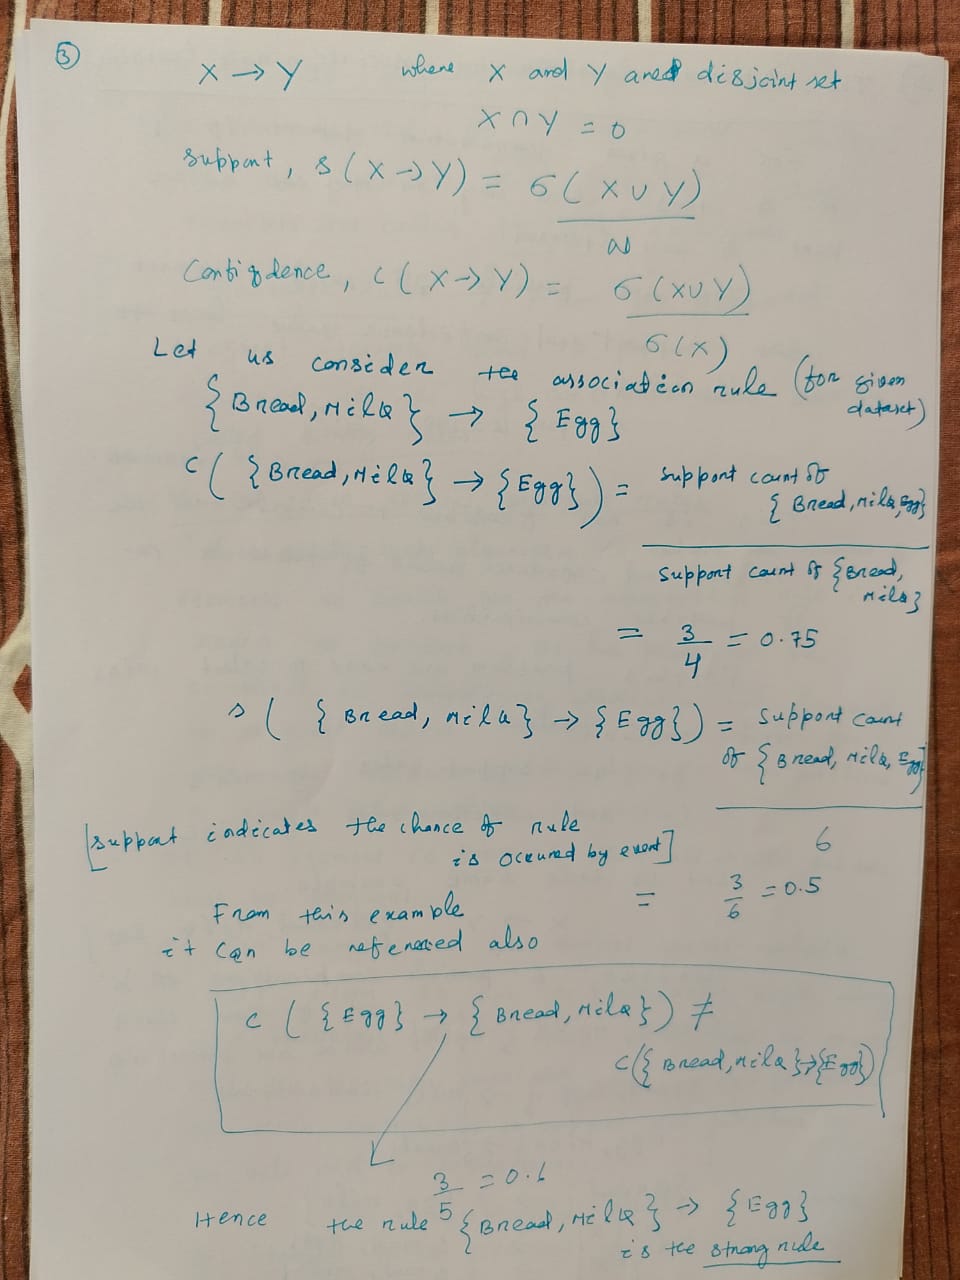 ③
X → Y where X and Y are disjoint set
X ∩ Y = 0
Support, s ( X → Y) = σ( X ∪ Y)
N
Confidence, c ( X → Y) = σ (X∪Y)
σ(X)
Let us consider the association rule (for given dataset)
{ Bread, Milk } → { Egg}
c ( { Bread, Milk} → {Egg} ) = Support count of { Bread, Milk, Egg}
Support count of {Bread, Milk}
= 3/4 = 0.75
s ( { Bread, Milk} → {Egg}) = Support count of { Bread, Milk, Egg}
6
[Support indicates the chance of rule
is occured by event]
= 3/6 = 0.5
From this example
it can be also
c ( {Egg} → { Bread, Milk}) ≠
c({ Bread, Milk}→{Egg})
3/5 = 0.6
Hence the rule {Bread, Milk} → {Egg}
is the strong rule